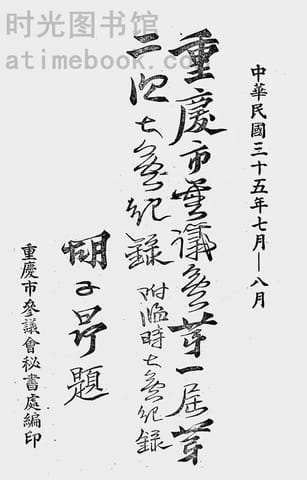 时光图书馆
atimebook.com
中華民國三十五年七月—八月
重慶市參議會第一屆第
二次大會紀錄
附臨時大會紀錄
胡子昂題
重慶市參議會秘書處編印